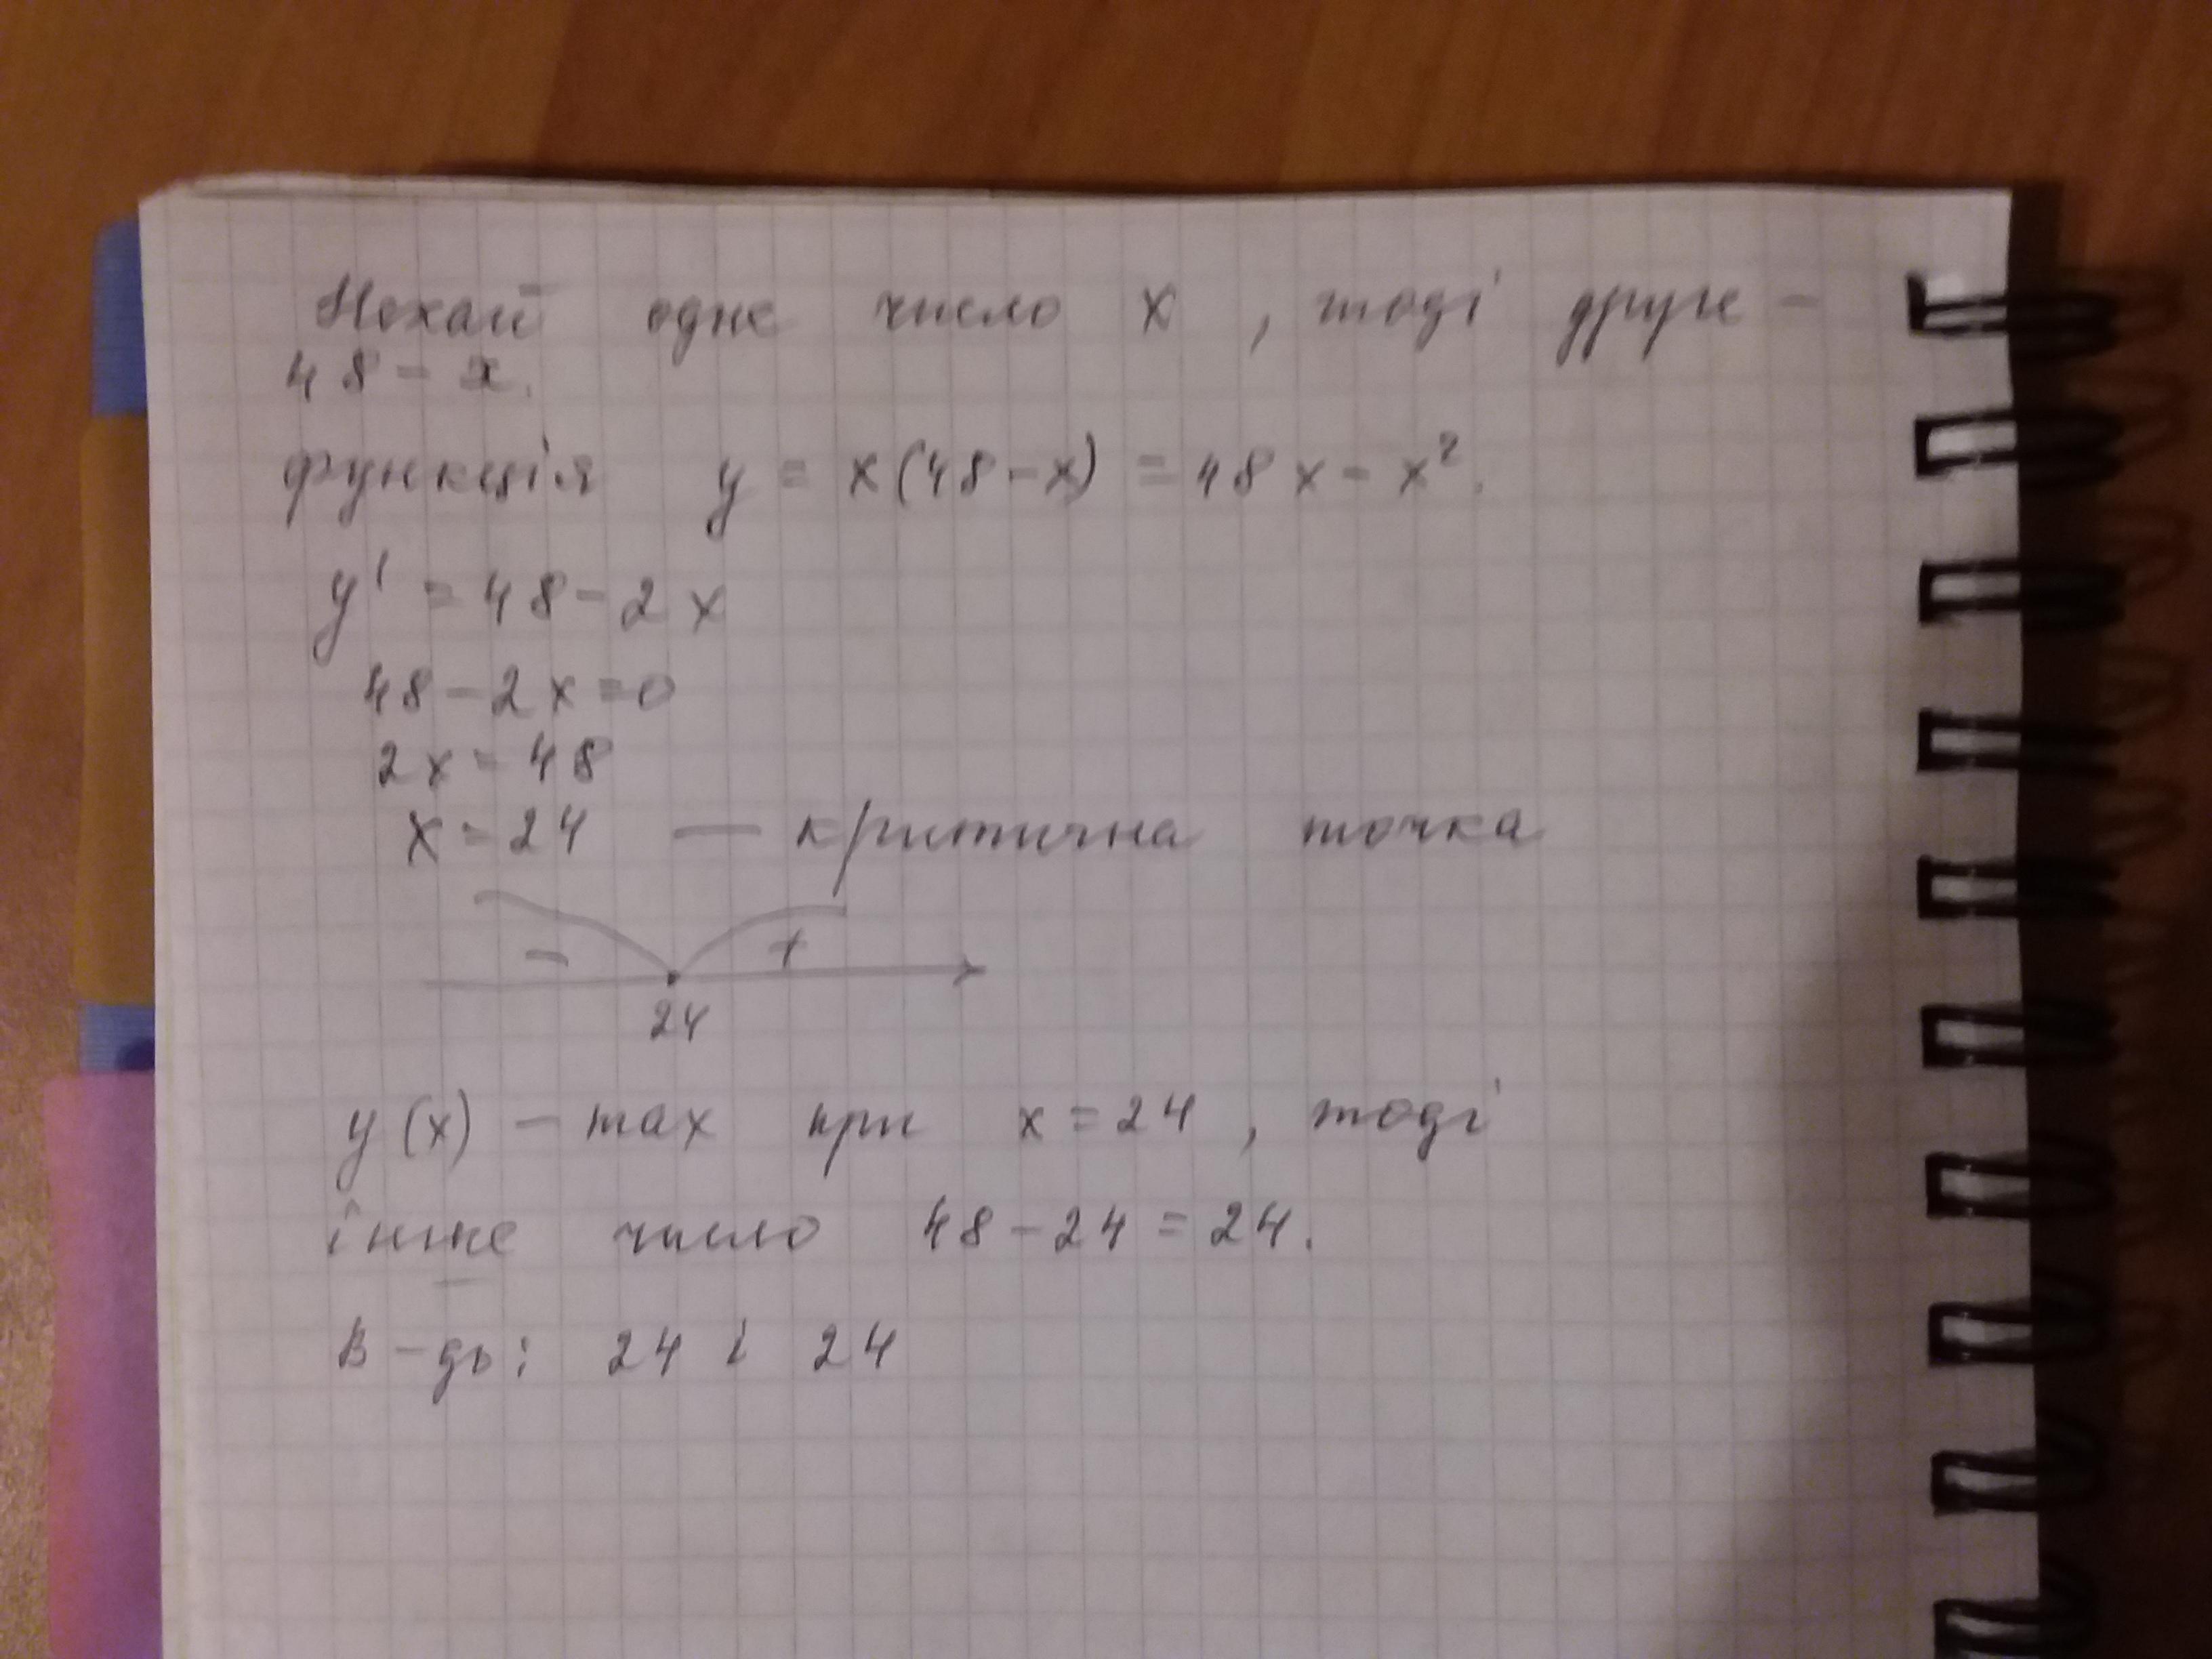 Нехай одне число x, тоді друге –
48 – x.
функція y = x(48 – x) = 48x – x².
y' = 48 – 2x
48 – 2x = 0
2x = 48
x = 24 — критична точка
– +
24
y(x) – max при x = 24, тоді
інше число 48 – 24 = 24.
В-дь: 24 і 24